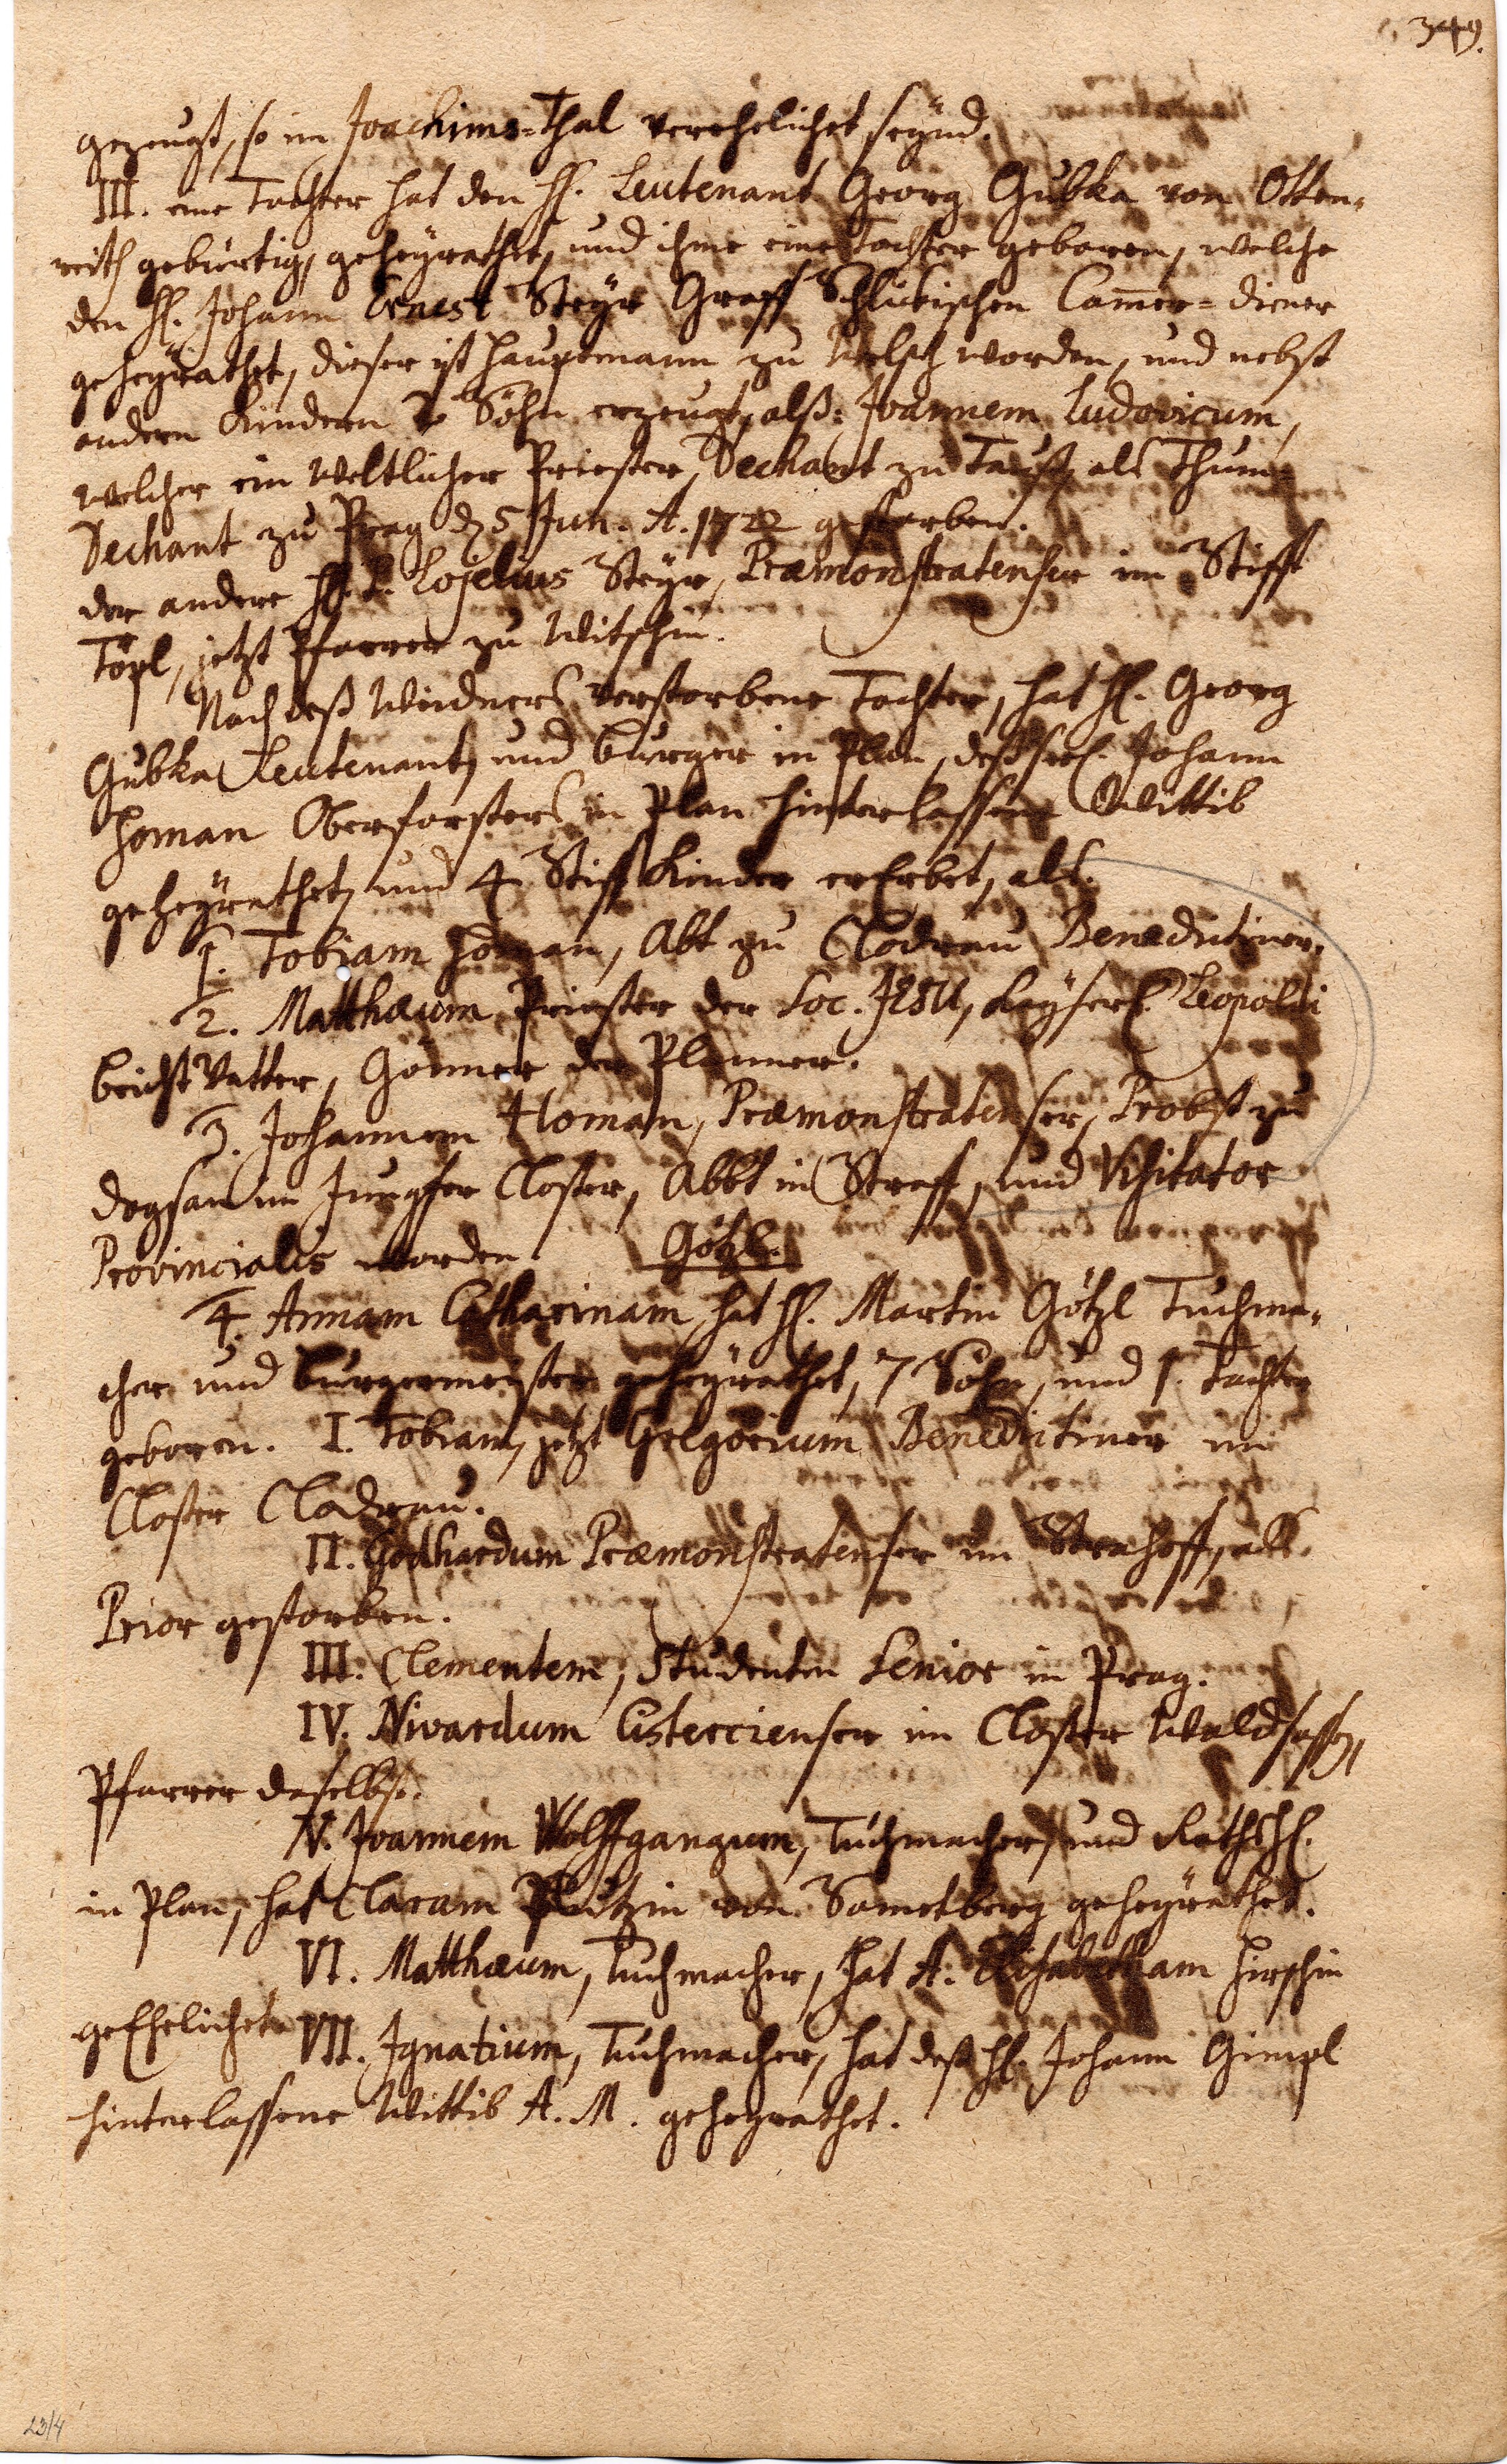 349.
gezeugt, so im Joachims=Thal verehelichet seynd.
III. eine Tochter hat den H. Leutenant Georg Gubka von Otten-
reith gebürtig, geheÿrathet, und ihme eine Tochter geboren, welche
den H. Johann Ernest Steyr Graff Schlickischen Cam̄er=diener
geheÿrathet, dieser ist Hauptmann zu worden, und nebst
andern Kindern 2 Söhn erzeugt, alß: Joannem Ludovicum,
welcher ein Weltlicher Priester, Dechant zu Tauß, als Thum=
Dechant zu Prag d. 5 Jun. A. 1722 gestorben.
der andere H. P. Lojelius Steyr, Præmonstratenser im Stifft
Töpl, jetzt Pfarrer zu Witschin.
Nach deß Widners verstorbene Tochter, hat H. Georg
Gubka Leutenant, und burger in Plan, deß seel. Johann
Homan Oberforsters in Plan hinterlassene Wittib
geheÿrathet, und 4 Stiff Kinder ererbet, als.
1. Tobiam Homan, Abt zu Cladrau Benedictiner.
2. Matthæum Priester der Soc. JESU, Kaÿserl. Leopoldi
beicht Vatter, Gönner der Planner.
3. Johannem Homan, Præmonstratenser, Probst zu
Dogsan im Jungfer Closter, Abbt in Straff, und Visitator
Provincialis worden. Götzl.
4. Annam Catharinam, hat H. Martin Götzl Tuchma-
cher und burgermeister geheÿrathet, 7 Söhn, und 1. Tochter
geboren. I. Tobiam, jetzt Gregorium Benedictiner im
Closter Cladrau.
II. Godhardum Præmonstratenser im Strahoff, als
Prior gestorben.
III. Clementem, Studenten Senior in Prag.
IV. Nivardum Cistercienser im Closter Waldsassen,
Pfarrer daselbst.
V. Joannem Wolffgangum, Tuchmacher, und Rathsh.
in Plan, hat Claram von Sametberg geheÿrathet.
VI. Matthæum, Tuchmacher, hat A. Elisabetham Hirschin
geEhelichet. VII. Ignatium, Tuchmacher, hat deß H. Johann Gimpl
hinterlassene Wittib A. M. geheÿrathet.
23/4